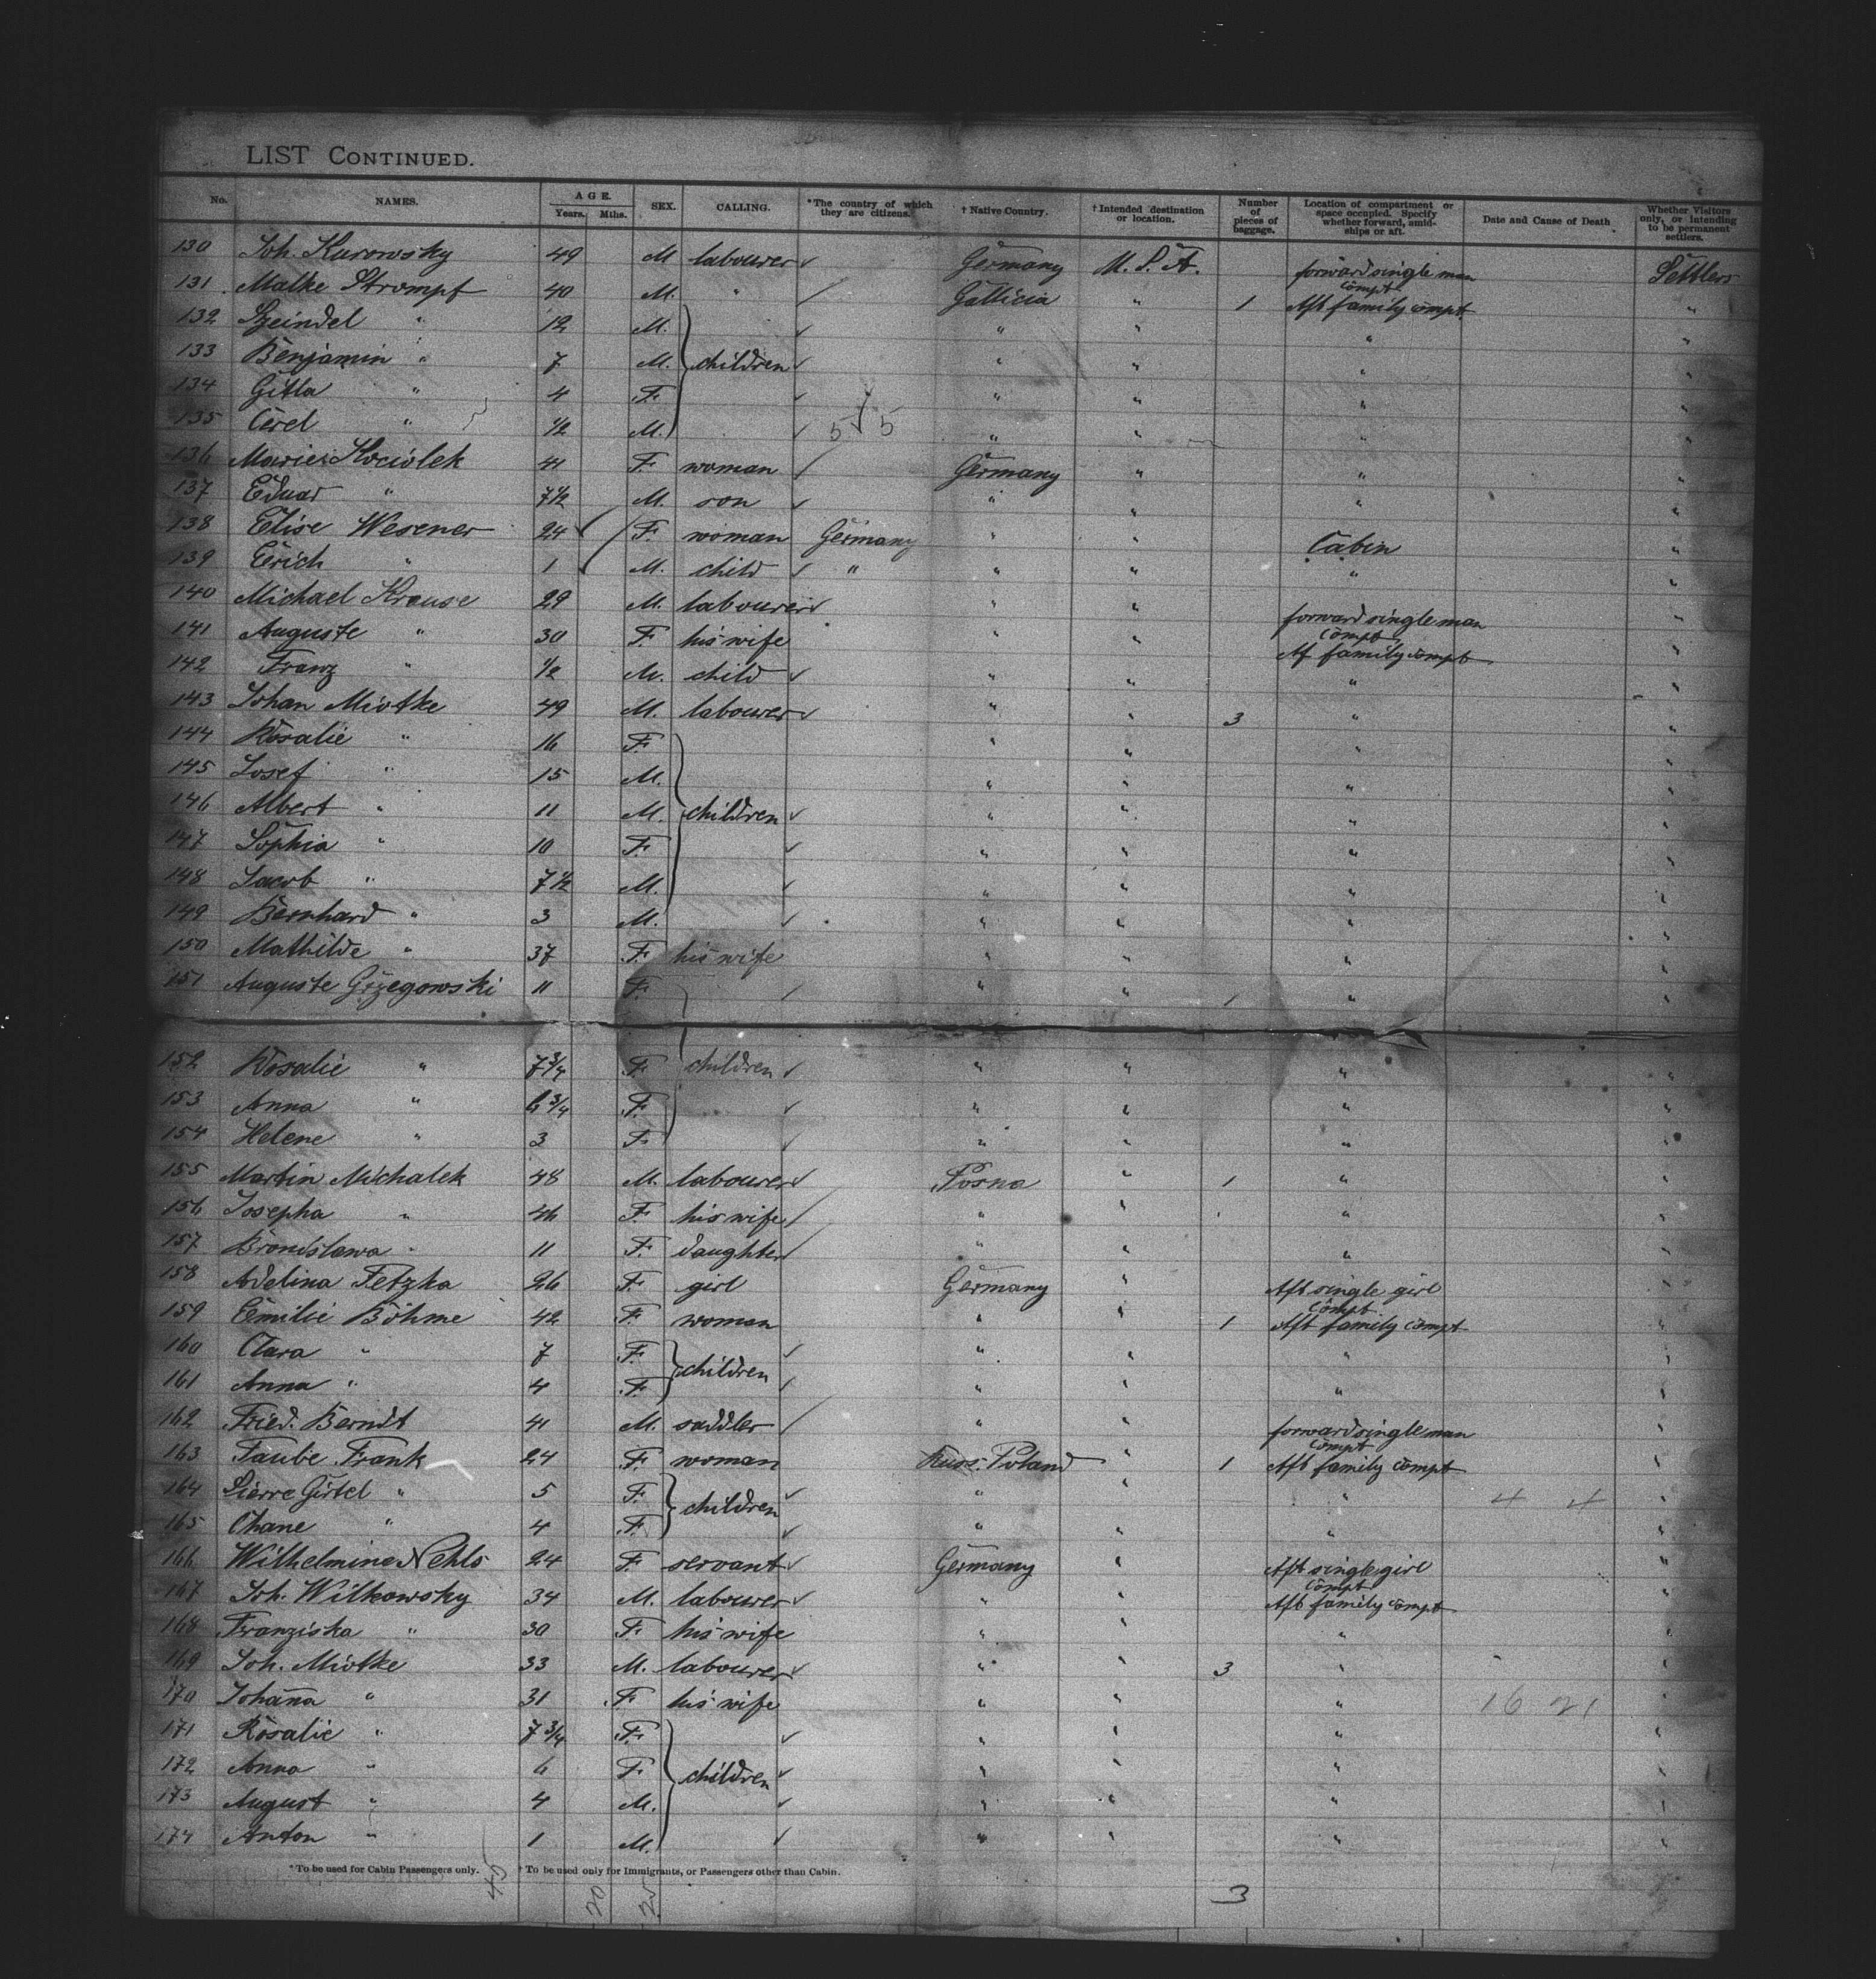 LIST CONTINUED.
No. NAMES. AGE. Years. Mths. SEX. CALLING. *The country of which they are citizens. † Native Country. † Intended destination or location. Number of pieces of baggage. Location of compartment or space occupied. Specify whether forward, amidships or aft. Date and Cause of Death. Whether Visitors only, or intending to be permanent settlers.
130 Joh. Kurowsky 49 M labourer Germany U.S.A. forward single man compt Settlers
131 Malke Strompf 40 M. " Gallicia " 1 Aft family compt "
132 Szeindel " 12 M. " " " "
133 Benjamin " 7 M. children " " " "
134 Gitla " 4 F. " " " "
135 Cerel " 1/2 M. 5 5 " " " "
136 Marie Kociolek 41 F. woman Germany " " "
137 Eduar " 7 1/2 M. son " " " "
138 Elise Wesener 24 F. woman Germany " " Cabin "
139 Erich " 1 M. child " " " " "
140 Michael Krause 29 M. labourer " " forward single man compt "
141 Auguste " 30 F. his wife " " Af family compt "
142 Franz " 1/2 M. child " " " "
143 Johan Miotke 49 M. labourer " " 3 " "
144 Rosalie " 16 F. " " " "
145 Josef " 15 M. " " " "
146 Albert " 11 M. children " " " "
147 Sophia " 10 F. " " " "
148 Jacob " 7 1/2 M. " " " "
149 Bernhard " 3 M. " " " "
150 Mathilde " 37 F. his wife " " " "
151 Auguste Grzegowski 11 F. " " 1 " "
152 Rosalie " 7 3/4 F. children " " " "
153 Anna " 6 3/4 F. " " " "
154 Helene " 3 F. " " " "
155 Martin Michalek 48 M. labourer Posna " 1 " "
156 Josepha " 46 F. his wife " " " "
157 Bronislawa " 11 F. daughter " " " "
158 Adelina Fetzka 26 F. girl Germany " Aft single girl compt "
159 Emilie Böhme 42 F. woman " " 1 Aft family compt "
160 Clara " 7 F. children " " " "
161 Anna " 4 F. " " " "
162 Fried. Berndt 41 M. saddler " " forward single man compt "
163 Taube Frank 24 F. woman Russ. Poland " 1 Aft family compt "
164 Girtel " 5 F. children " " " 4 4 "
165 Chane " 4 F. " " " "
166 Wilhelmine Nehls 24 F. servant Germany " Aft single girl compt "
167 Joh. Wilkowsky 34 M. labourer " " Aft family compt "
168 Franziska " 30 F. his wife " " " "
169 Joh. Miotke 33 M. labourer " " 3 " "
170 Johana " 31 F. his wife " " " 16 21 "
171 Rosalie " 7 3/4 F. " " " "
172 Anna " 6 F. children " " " "
173 August " 4 M. " " " "
174 Anton " 1 M. " " " "
*To be used for Cabin Passengers only. † To be used only for Immigrants, or Passengers other than Cabin.
45 20 25 3